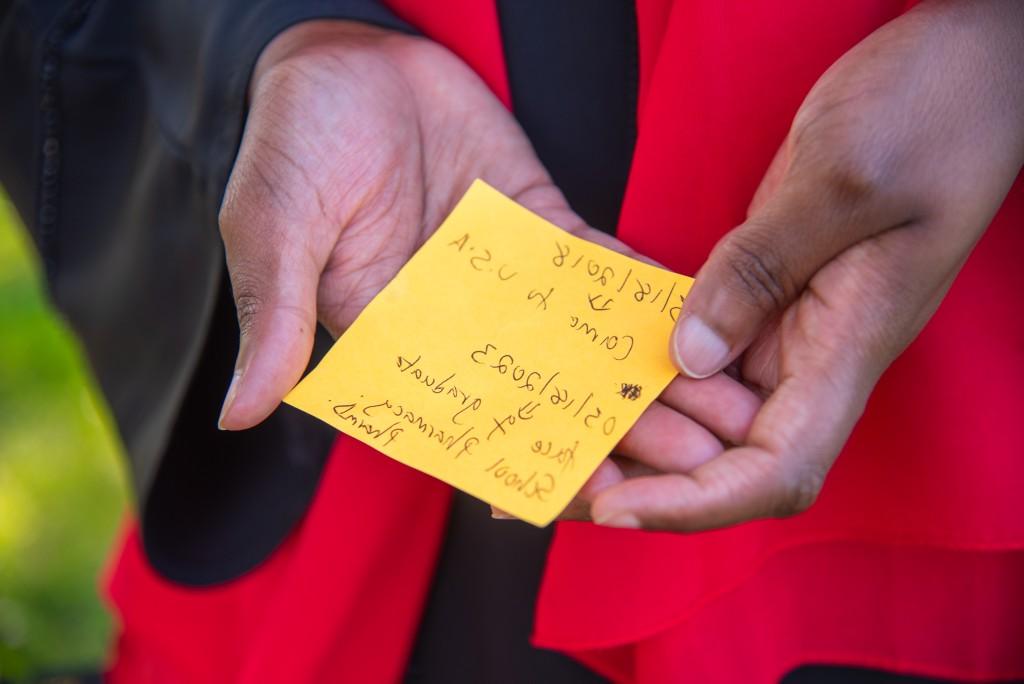 5/18/2018
Came to U.S.A
05/18/2023
graduate
School Pharmacy
PharmD.